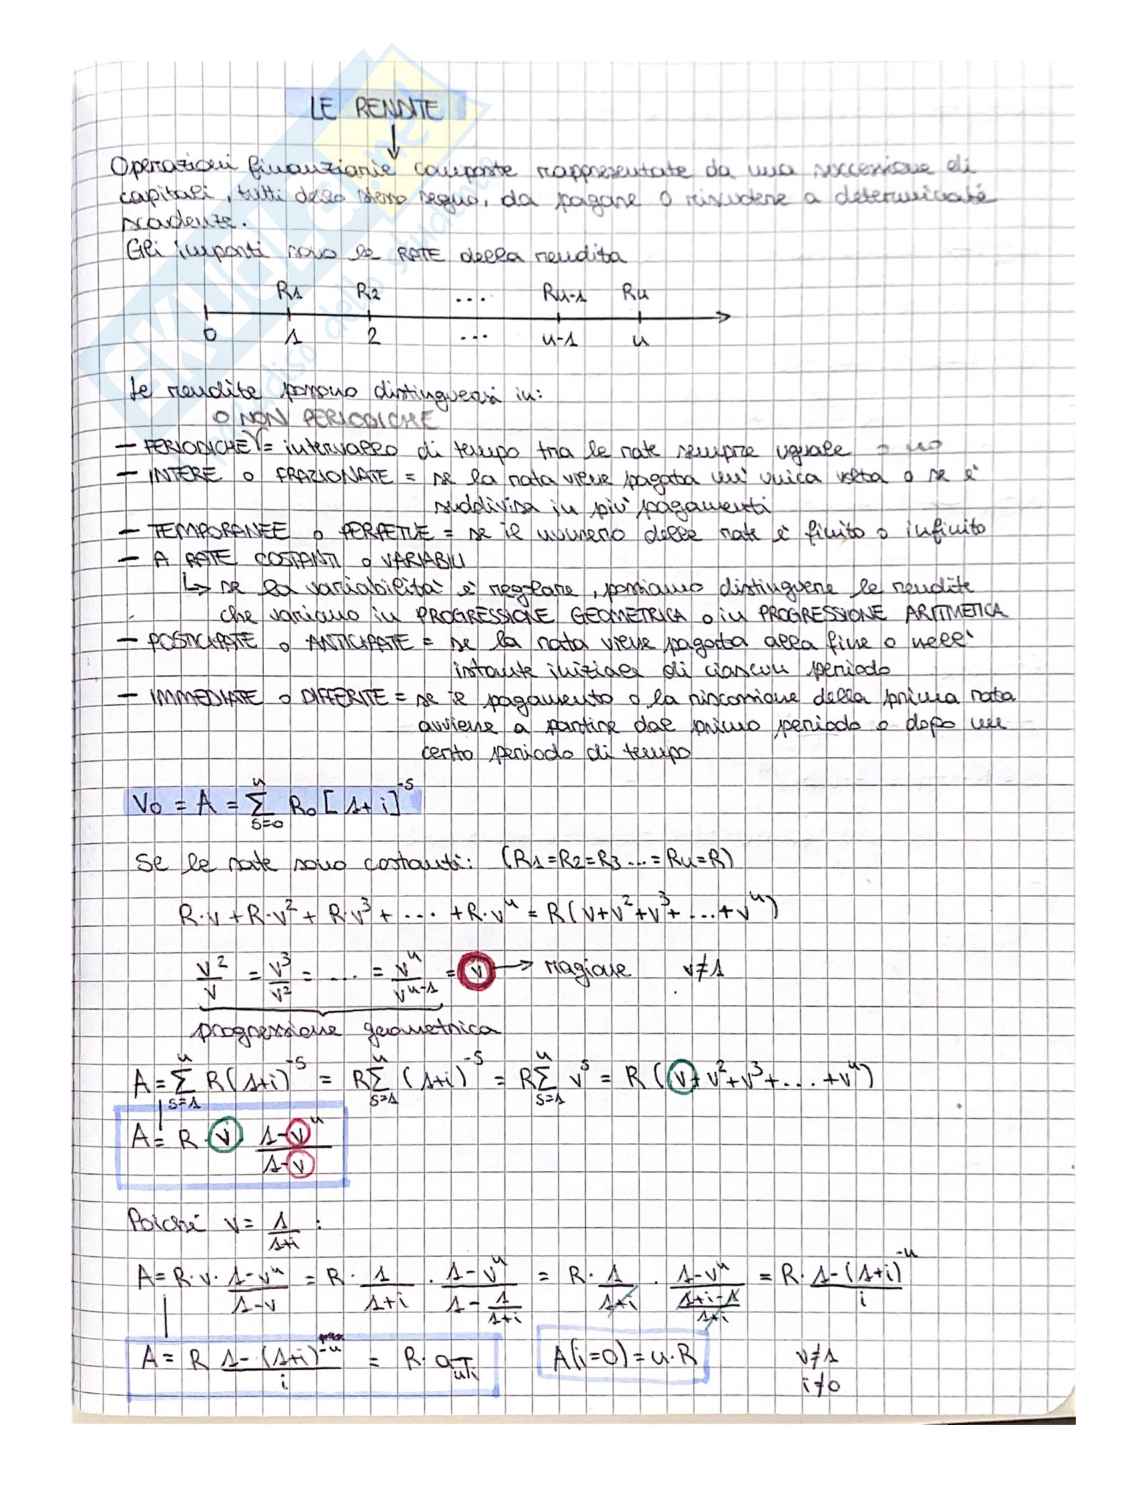 LE RENDITE
↓
Operazioni finanziarie composte rappresentate da una successione di
capitali, tutti dello stesso segno, da pagare o riscuotere a determinate
scadenze.
Gli importi sono le RATE della rendita
R1 R2 .... Rn-1 Rn
0 1 2 ... n-1 n
Le rendite possono distinguersi in:
O NON PERIODICHE
- PERIODICHE = intervallo di tempo tra le rate sempre uguale o no
- INTERE o FRAZIONATE = se la rata viene pagata un' unica volta o se è
suddivisa in più pagamenti
- TEMPORANEE o PERPETUE = se il numero delle rate è finito o infinito
- A RATE COSTANTI o VARIABILI
↳ se la variabilità è regolare, possiamo distinguere le rendite
che variano in PROGRESSIONE GEOMETRICA o in PROGRESSIONE ARITMETICA
- POSTICIPATE o ANTICIPATE = se la rata viene pagata alla fine o nell'
istante iniziale di ciascun periodo
- IMMEDIATE o DIFFERITE = se il pagamento o la riscossione della prima rata
avviene a partire dal primo periodo o dopo un
certo periodo di tempo
V0 = A = Σ_{s=0}^{n} R0 [1+i]^-s
Se le rate sono costanti: (R1=R2=R3...=Rn=R)
R·v + R·v² + R·v³ + .... + R·v^n = R(v+v²+v³+...+v^n)
v²/v = v³/v² = .... = v^n/v^n-1 = v → ragione v≠1
progressione geometrica
A = Σ_{s=1}^{n} R(1+i)^-s = R Σ_{s=1}^{n} (1+i)^-s = R Σ_{s=1}^{n} v^s = R (v+v²+v³+....+v^n)
A = R v (1-v^n)/(1-v)
Poiché v = 1/(1+i) :
A = R·v· (1-v^n)/(1-v) = R· 1/(1+i) · (1-v^n)/(1 - 1/(1+i)) = R· 1/(1+i) · (1-v^n)/((1+i-1)/(1+i)) = R· (1-(1+i)^-n)/i
A = R (1-(1+i)^-n)/i = R· a n̅|i
A(i=0) = n·R
v≠1
i≠0